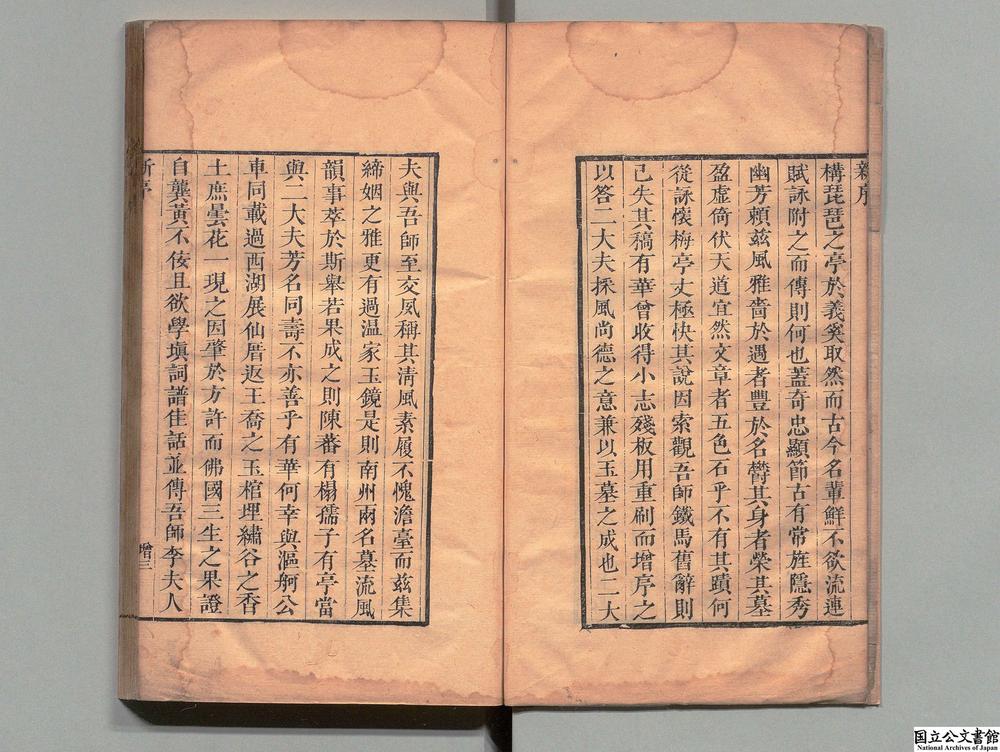 新序
構琵琶之亭於義奚取然而古今名輩鮮不欲流連
賦詠附之而傳則何也蓋奇忠顯節古有常旌隱秀
幽芳頼兹風雅嗇於遇者豐於名欎其身者榮其墓
盈虛倚伏天道宜然文章者五色石乎不有其蹟何
從詠懷梅亭丈極快其說因索觀吾師鐵馬舊辭則
已失其稿有華曾收得小志殘板用重刷而增序之
以答二大夫採風尚德之意兼以玉墓之成也二大
夫與吾師至交夙稱其清風素履不愧澹臺而兹集
締姻之雅更有過温家玉鏡是則南州兩名墓流風
韻事萃於斯舉若果成之則陳蕃有榻孺子有亭當
與二大夫芳名同壽不亦善乎有華何幸與漚舸公
車同載過西湖展仙厝返王喬之玉棺埋繡谷之香
土庶曇花一現之因肇於方許而佛國三生之果證
自龔黃不佞且欲學塡詞譜佳話並傳吾師李夫人
新序
增三
国立公文書館
National Archives of Japan